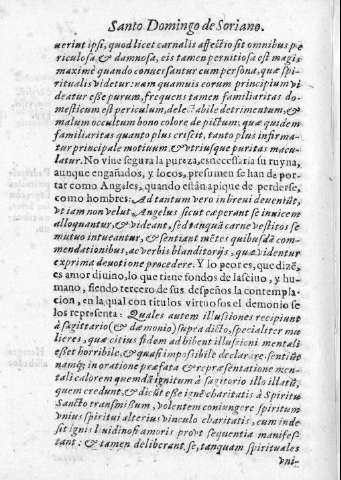 Santo Domingo de Soriano.
uerint ipsi, quod licet carnalis affectio sit omnibus pe
riculosa, & damnosa, eis tamen pernitiosa est magis
maximè quando conuersantur cum persona, quæ spi-
ritualis videtur: nam quamuis eorum principium vi
deatur esse purum, frequens tamen familiaritas do-
mesticum est periculum, delectabile detrimentum, &
malum occultum bono colore depictum; quæ quidem
familiaritas quanto plus crescit, tanto plus infirma-
tur principale motiuum, & vtriusque puritas macu-
latur. No viue segura la pureza, es necessaria su ruyna,
aunque engañados, y locos, presumen se han de por-
tar como Angeles, quando están a pique de perderse,
como hombres: Ad tantum vero in breui deueniũt,
vt iam non velut Angelus sicut caperant se inuicem
alloquantur, & videant, sed tanquã carne vestitos se
mutuo intueantur, & sentiant mẽtes quibusdã com-
mendationibus, ac verbis blanditorijs, quæ videntur
ex prima deuotione procedere. Y lo peor es, que dizẽ,
es amor diuino, lo que tiene fondos de lasciuo, y hu-
mano, siendo tercero de sus despeños la contempla-
cion, en la qual con titulos virtuosos el demonio se
los representa: Quales autem illusiones recipiunt
à sagittario (& dæmonio) supra dicto, specialiter mu
lieres, quæ citius fidem adhibent illusioni mentali
esset horribile, & quasi impossibile declarare. sentiũt
namq; in oratione præfata & repræsentatione men-
tali calorem quemdã ignitum à sagitorio illo illatũ,
quem credunt, & dicũt esse ignẽ charitatis à Spiritu
Sancto transmissum, volentem coniungere spiritum
vnius spiritui alterius vinculo charitatis, cum inde
sit ignis libidinosi amoris prout sequentia manifes-
tant: & tamen deliberant se, tanquam spirituales
vni-